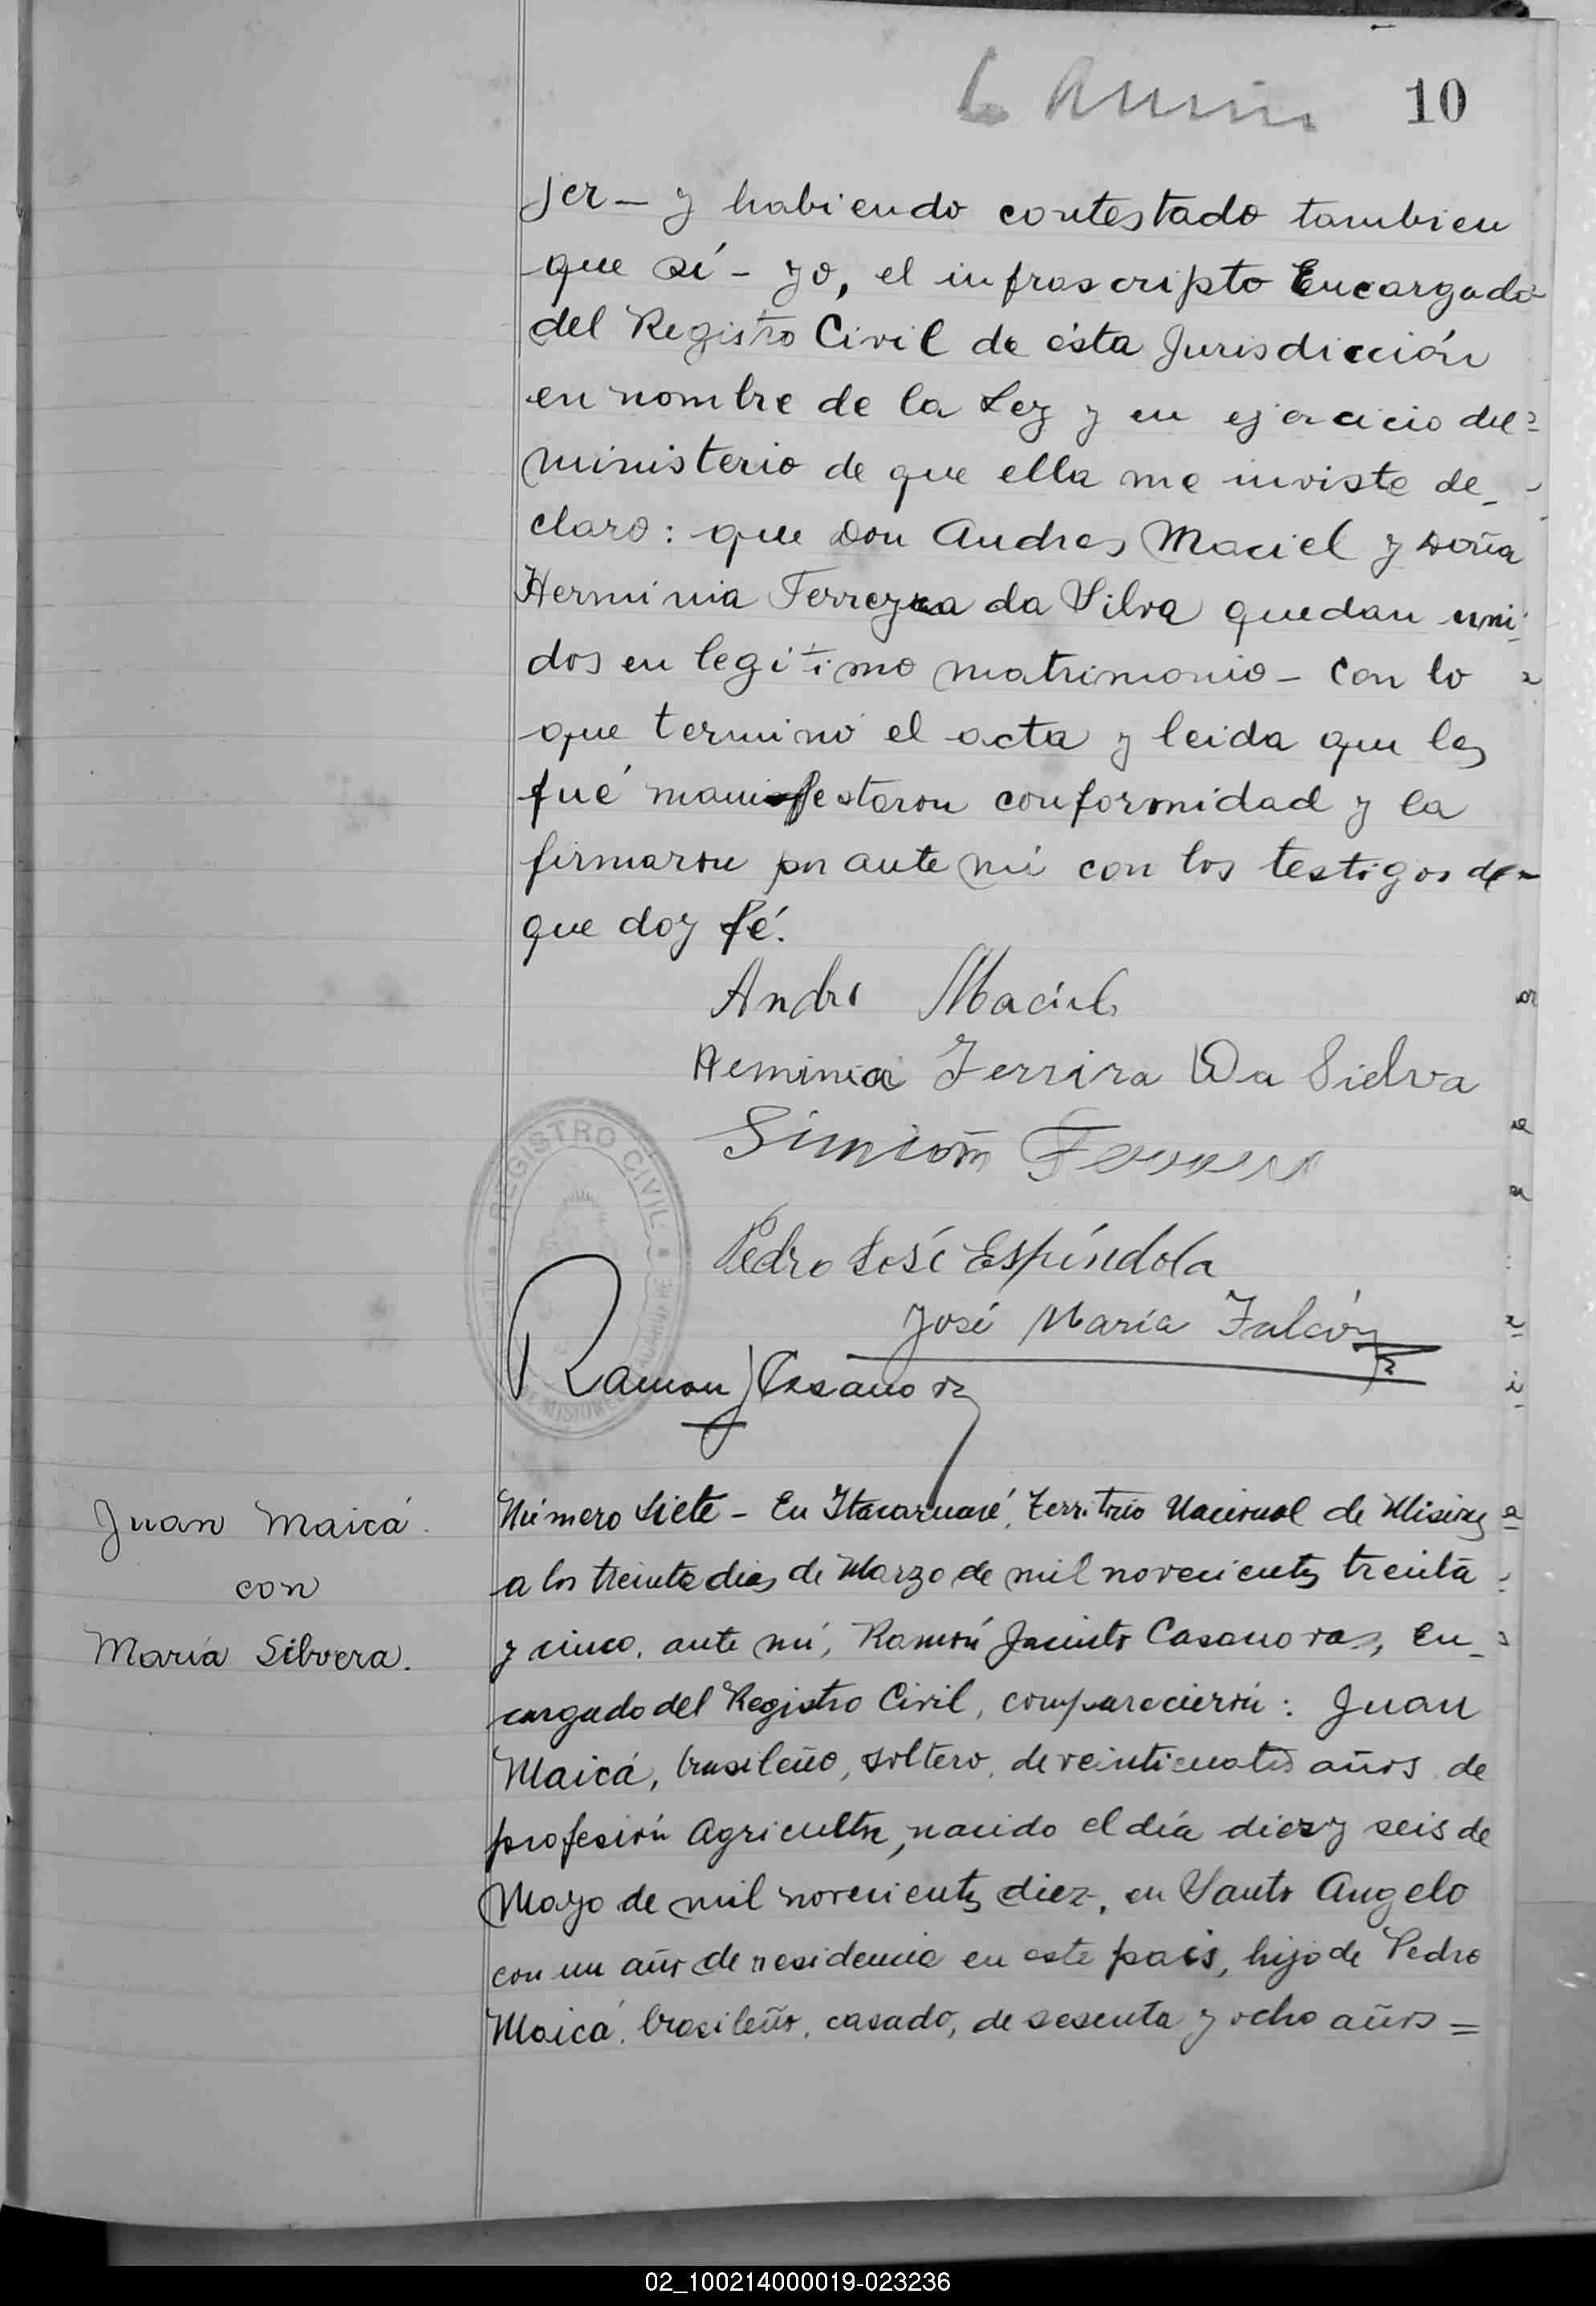 10
jer - y habiendo contestado tambien
que sí - yo, el infrascripto Encargado
del Registro Civil de ésta Jurisdicción
en nombre de la Ley y en ejercicio del
ministerio de que ella me inviste de_
claro: que Don Andres Maciel y Doña
Herminia Ferreyra da Silva quedan uni
dos en legitimo matrimonio - Con lo
que terminó el acta y leida que les
fué manifestaron conformidad y la
firmaron por ante mí con los testigos de
que doy fé.
Andrs Maciel
Heminia Ferrira Da Sielva
Simión
REGISTRO CIVIL
Pedro José Espíndola
José María Falcón
Ramon J Casanova
MISIONES
Juan Maicá
con
María Silvera.
Número Siete - En Itacaruaré, Territorio Nacional de Misiones
a los treinta dias de Marzo de mil novecientos treinta
y cinco, ante mí, Ramón Jacinto Casanovas, En_
cargado del Registro Civil, comparecieron: Juan
Maicá, brasileño, soltero, de veinticuatro años de
profesión Agricultor, nacido el día diez y seis de
Mayo de mil novecientos diez, en Santo Angelo
con un año de residencia en este pais, hijo de Pedro
Maicá, brasileño, casado, de sesenta y ocho años =
02_100214000019-023236